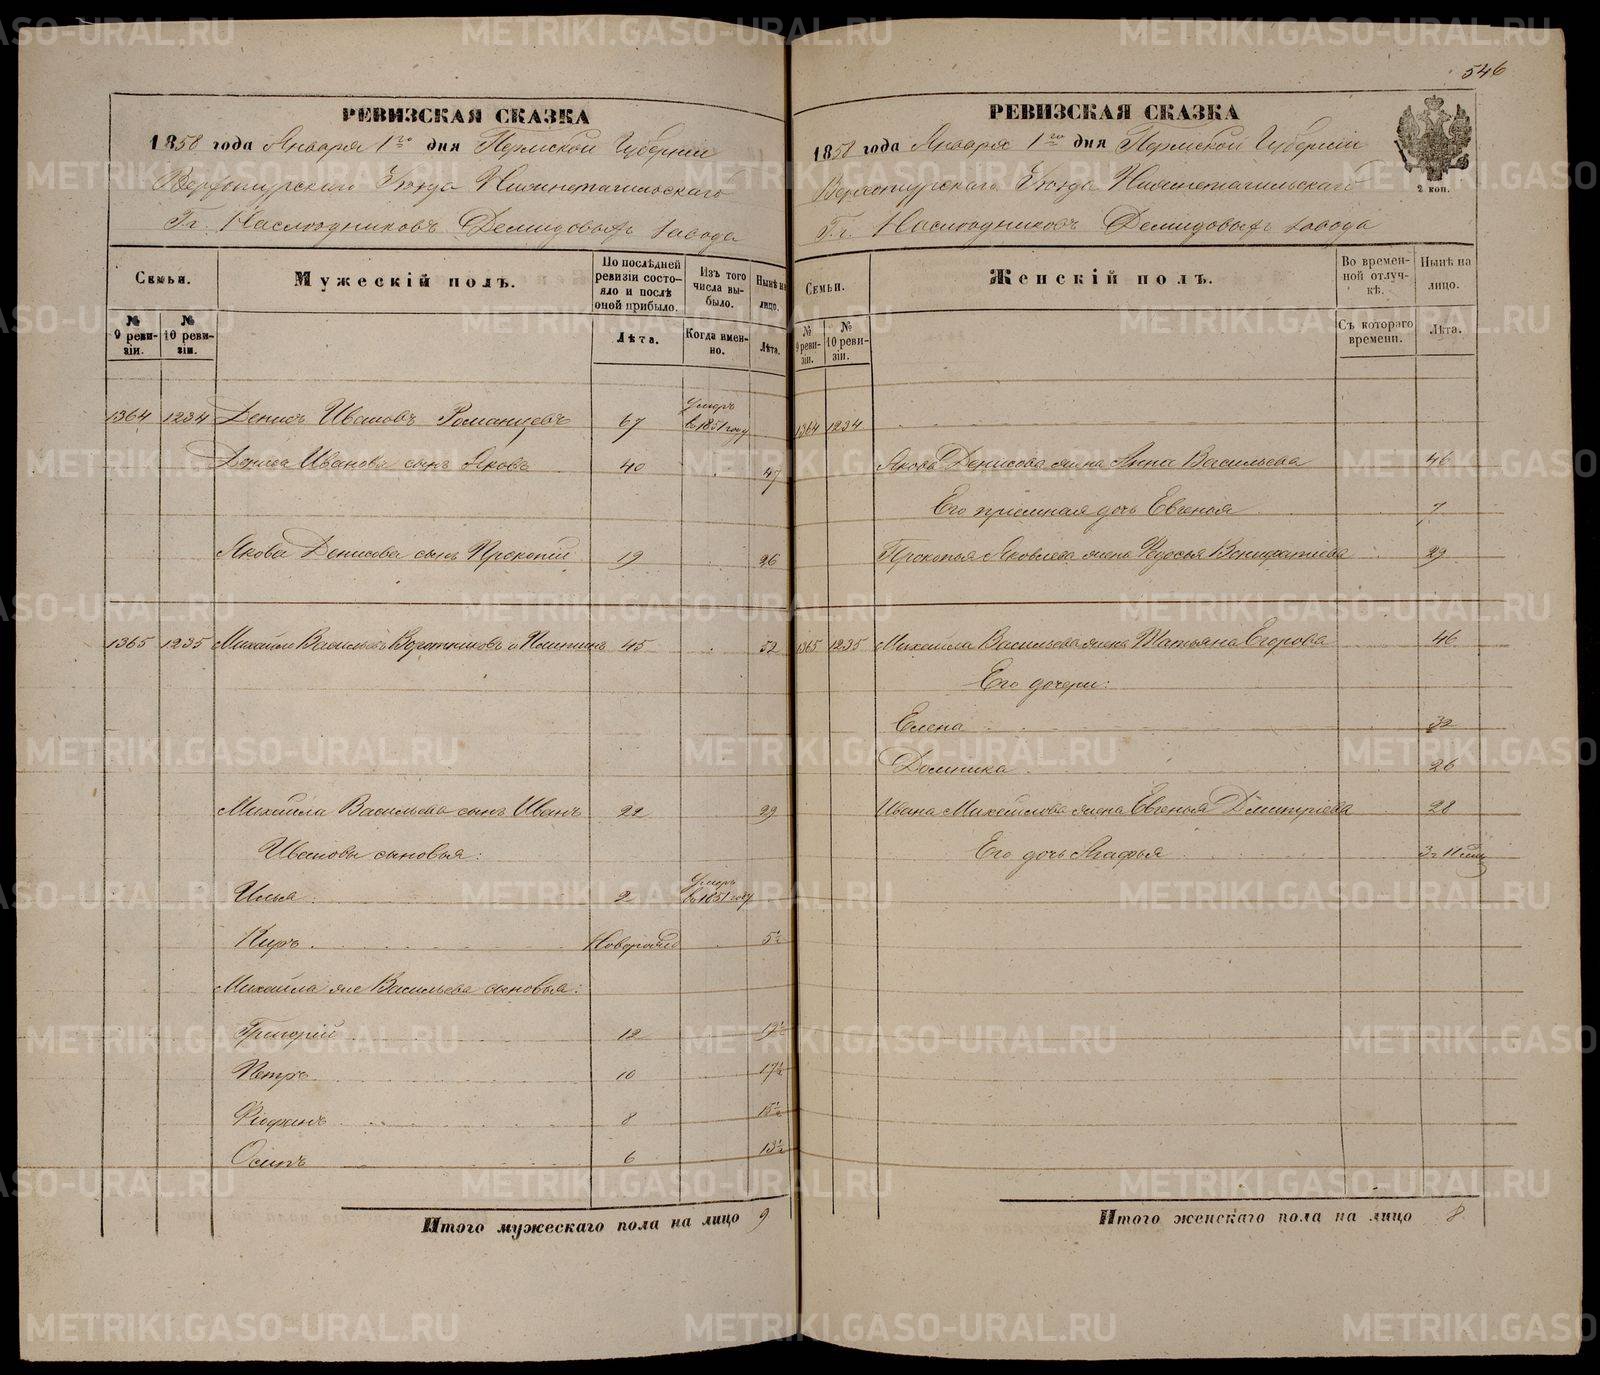 546
РЕВИЗСКАЯ СКАЗКА
1858 года Января 1го дня Пермской Губернии
Верхотурскаго Уѣзда Нижнетагильскаго
Гг. Наслѣдниковъ Демидовыхъ завода
Семьи.
Мужескій полъ.
По послѣдней ревизіи состояло и послѣ оной прибыло.
Изъ того числа выбыло.
Нынѣ на лицо.
№ 9 ревизіи.
№ 10 ревизіи.
Лѣта.
Когда именно.
Лѣта.
1364 1234 Денисъ Ивановъ Романцевъ 67 Умеръ въ 1851 году
Дениса Иванова сынъ Яковъ 40 47
Якова Денисова сынъ Прокопій 19 26
1365 1235 Михайло Васильевъ Воротниковъ и 45 52
Михайла Васильева сынъ Иванъ 22 29
Ивановы сыновья:
Илья 2 Умеръ въ 1851 году
Киръ Новорожд 5½
Михайла же Васильева сыновья:
Григорій 12 19½
Петръ 10 17½
8 15½
Осипъ 6 13½
Итого мужескаго пола на лицо 9
РЕВИЗСКАЯ СКАЗКА
1858 года Января 1го дня Пермской Губерніи
Верхотурскаго Уѣзда Нижнетагильскаго
Гг. Наслѣдниковъ Демидовыхъ завода
2 коп.
Семьи.
Женскій полъ.
Во временной отлучкѣ.
Нынѣ на лицо.
№ 9 ревизіи.
№ 10 ревизіи.
Съ котораго времени.
Лѣта.
1364 1234
Якова Денисова жена Анна Васильева 46
Его приемная дочь Евгенья 7
Прокопья Яковлева жена Вонифатіева 29
1365 1235 Михайла Васильева жена Татьяна Егорова 46
Его дочери:
Елена 32
Домника 26
Ивана Михайлова жена Евгенья Дмитріева 28
Его дочь Агафья 3 г 11 мѣс
Итого женскаго пола на лицо 8
METRIKI.GASO-URAL.RU